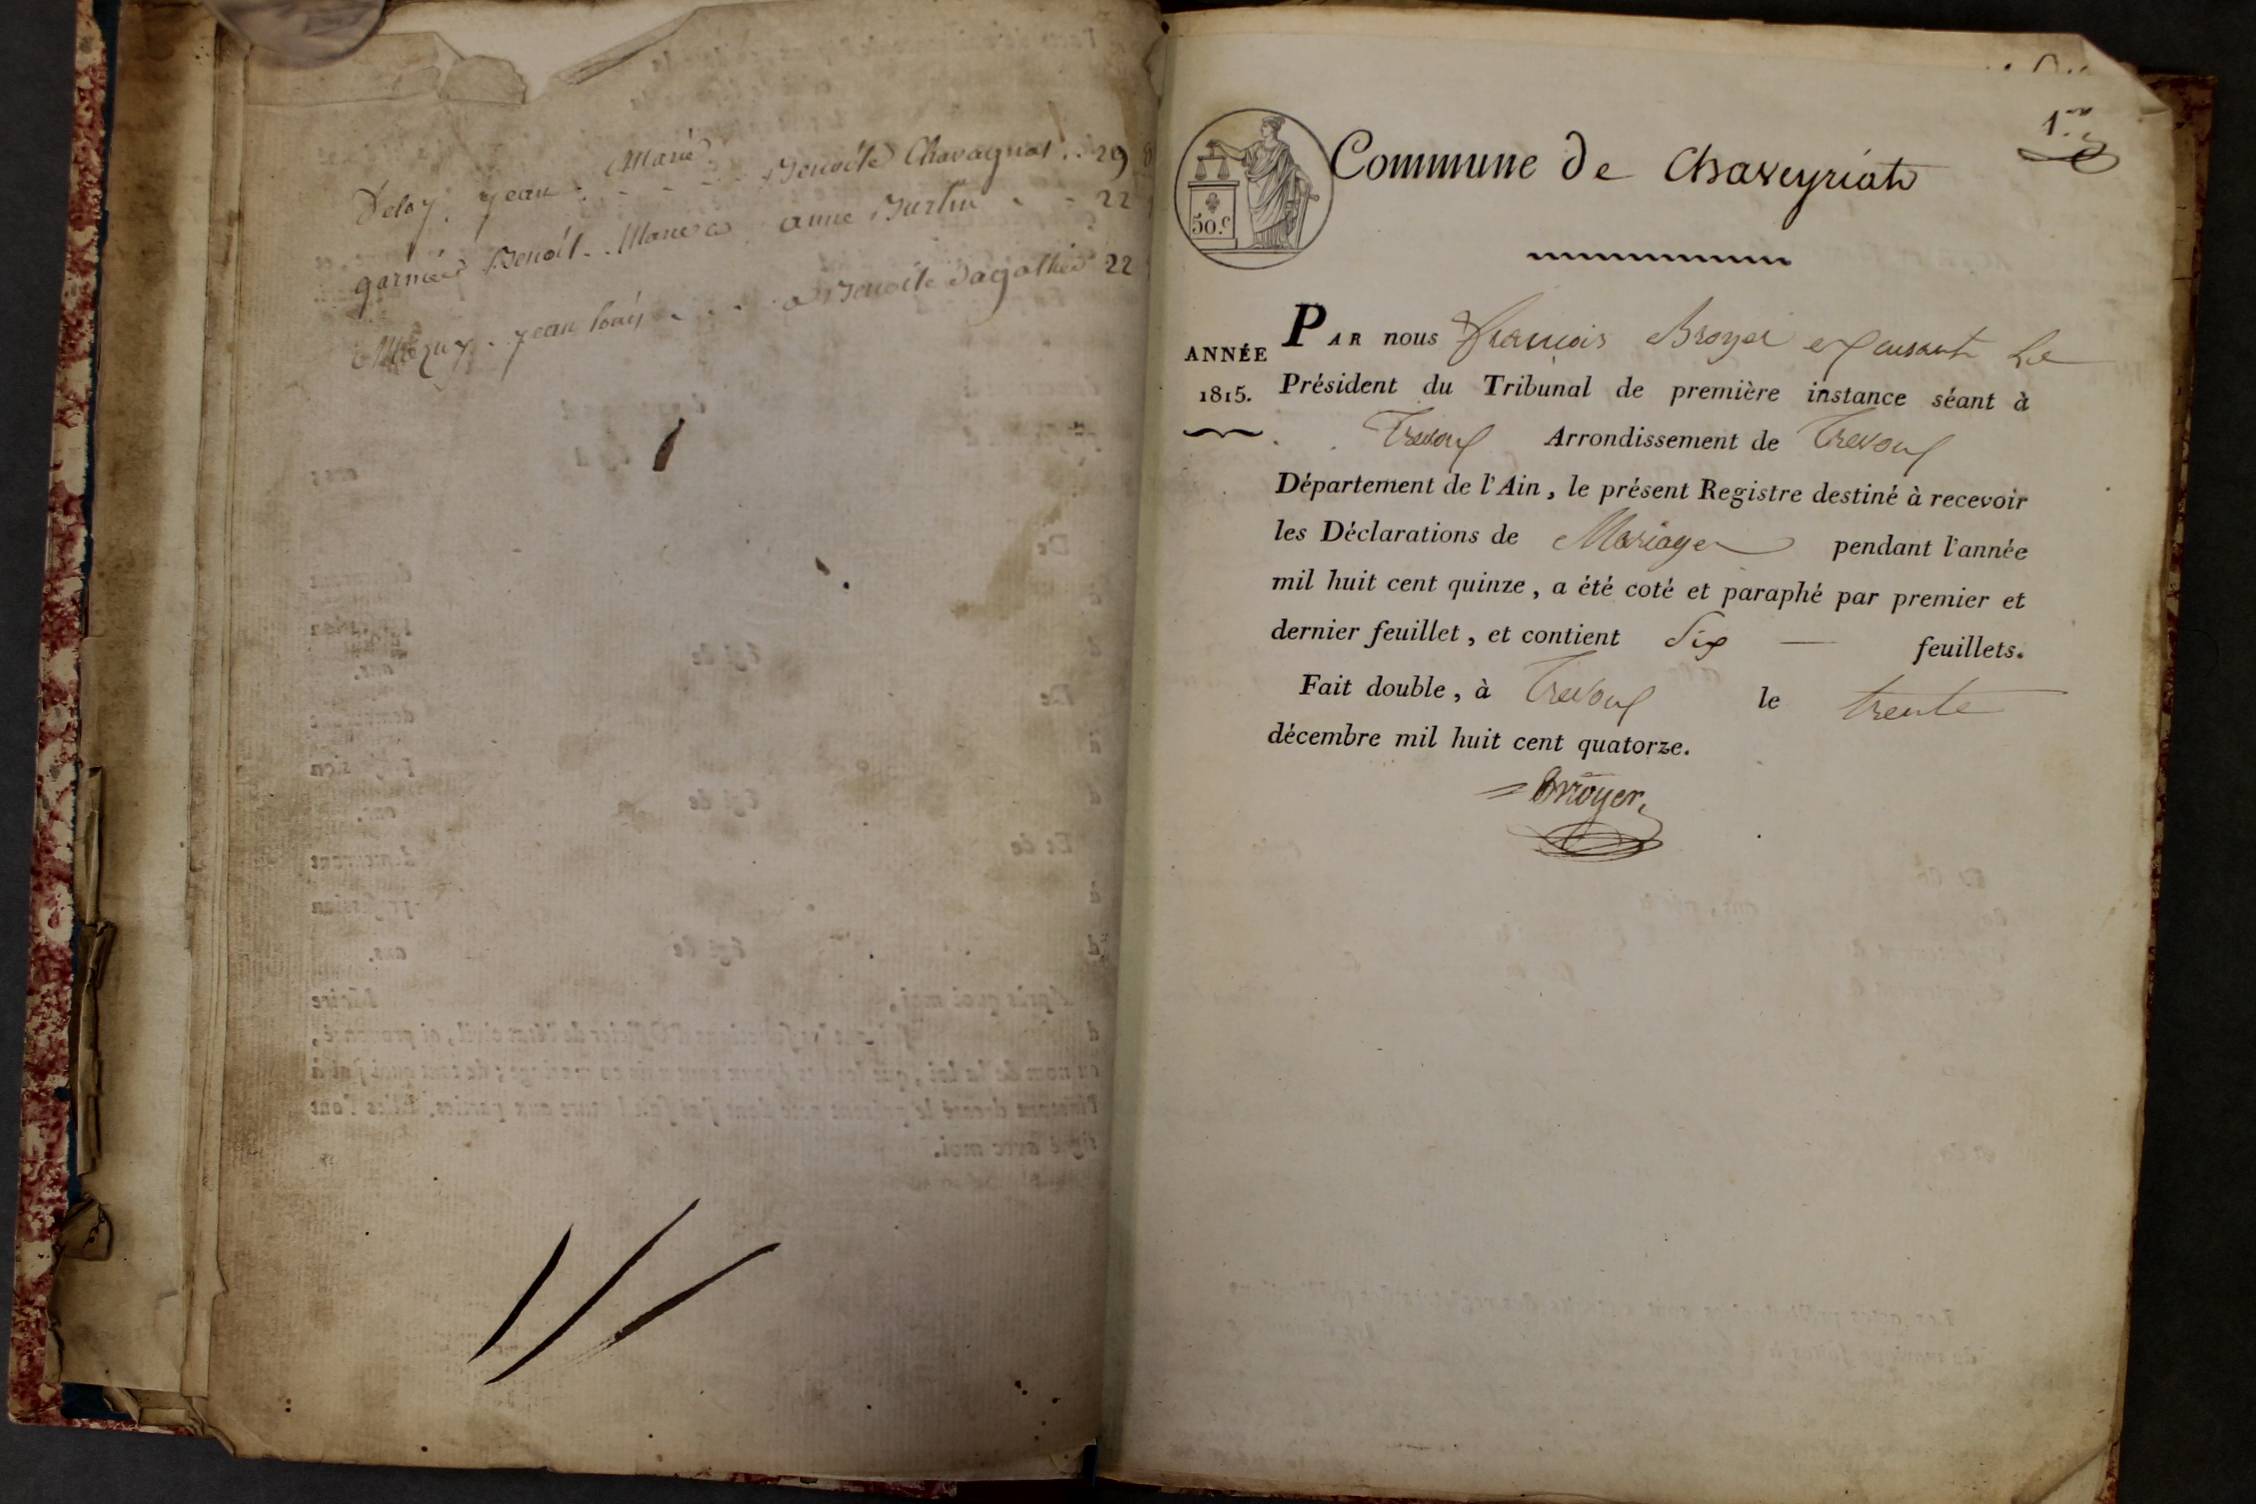 Marié
Deloy. Jean . - - - . Benoite Chavagnat . . 29
garnier Benoit . Marié a anne Burtin . - 22
jean louis - - . a Benoite 22
1.er
Commune de Chaveyriat
50.c
PAR nous françois Broyer Le
ANNÉE
1815.
Président du Tribunal de première instance séant à
Trevoux Arrondissement de Trevoux
Département de l'Ain, le présent Registre destiné à recevoir
les Déclarations de Mariages pendant l'année
mil huit cent quinze, a été coté et paraphé par premier et
dernier feuillet, et contient Six — feuillets.
Fait double, à Trevoux le trente
décembre mil huit cent quatorze.
Broyer